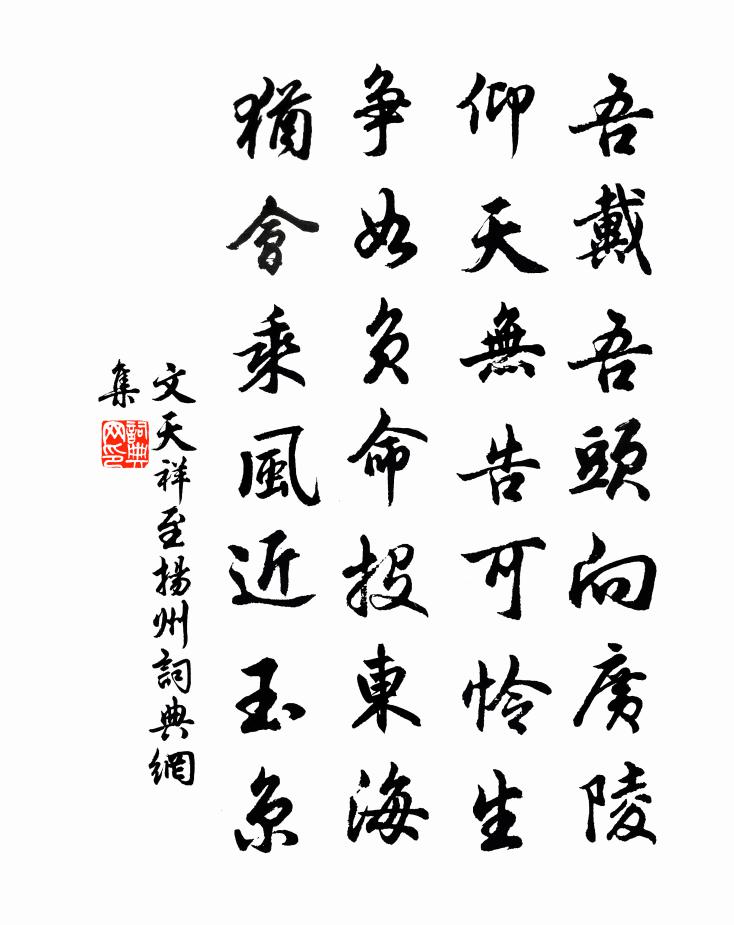 吾戴吾頭向廣陵
仰天無告可怜生
争如負命投東海
猶會乘風近玉京
文天祥至揚州詞典網
集
詞典
网印